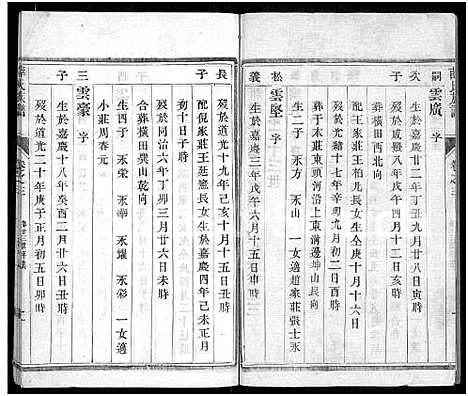 次
嗣雲廣 字
子
生於嘉慶廿二年丁丑九月廿八日寅時
歿於咸豐八年戊午十二月十三日亥時
葬于橫田西北向
配倪家莊王柏光長女生仝庚十月十六日
歿於光緒十七年辛卯九月初二日酉時
葬于小莊東頭河沿上邊坤山艮向
生二子 永方 永山 一女適趙家莊張士永
松雲堅 字
義
生於嘉慶三年戊午六月廿六日申時
長
子
歿於道光十九年己亥十月十五日丑時
配倪家莊王廷憲長女生於嘉慶四年己未正月
初十日子時
歿於同治六年丁卯三月廿六日未時
合葬橫田巽山乾向
生四子 永榮 永華 永燿 永彩 一女適
小莊周春元
三雲豪 字
子
生於嘉慶十八年癸酉二月廿六日丑時
歿於道光二十年庚子正月初五日卯時
卷之三